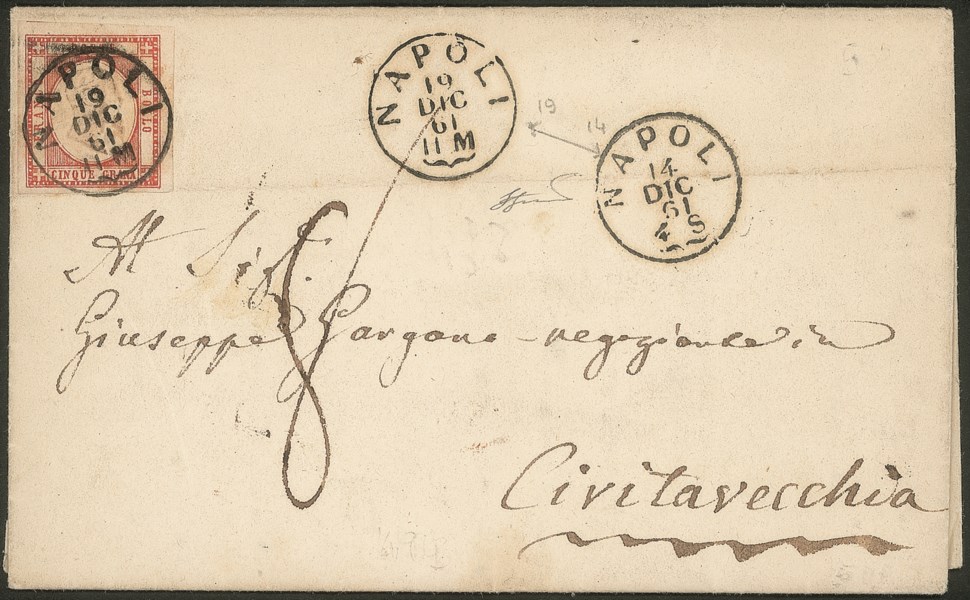 GRANA
BOLLO
CINQUE GRANA
NAPOLI
19
DIC
61
11 M
NAPOLI
19
DIC
61
11 M
19
14
NAPOLI
14
DIC
61
4 S
8
Al Sigr.
Giuseppe Gargano negoziante in
Civitavecchia